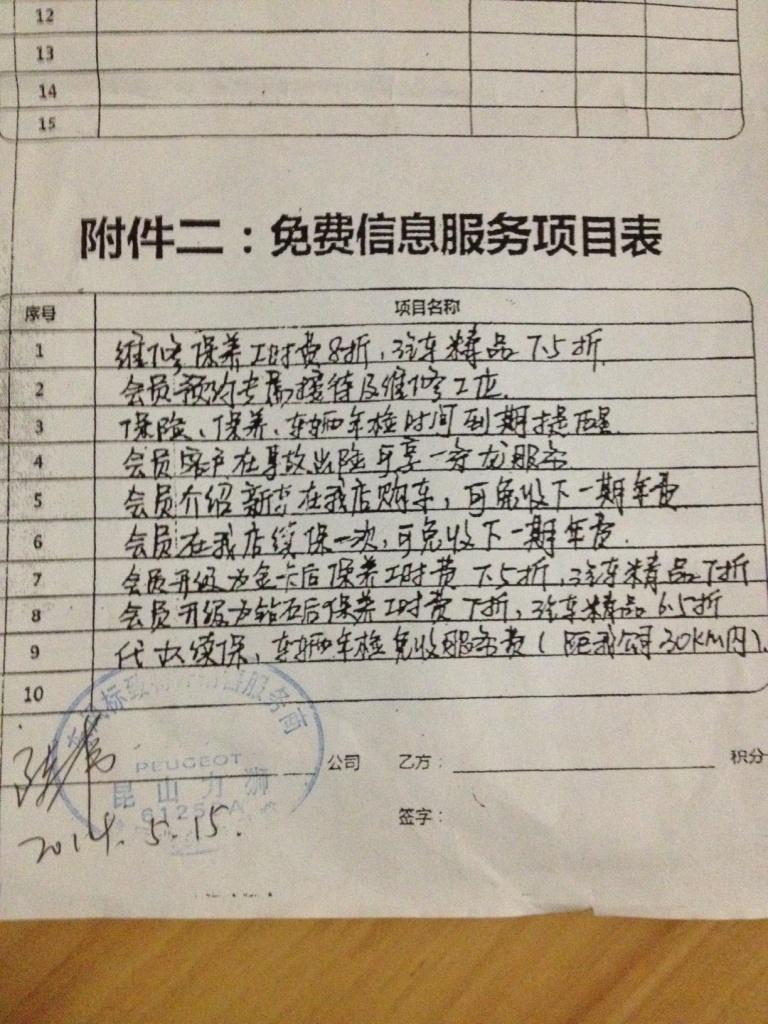 12
13
14
15
附件二：免费信息服务项目表
序号 项目名称
1 维修保养工时费8折，汽车精品7.5折
2 会员预约专属接待及维修工位.
3 保险、保养、车辆年检时间到期提醒.
4 会员客户在事故出险可享一条龙服务
5 会员介绍新车在我店购车，可免收下一期年费
6 会员在我店续保一次，可免收下一期年费.
7 会员升级为金卡后保养工时费7.5折，汽车精品7折
8 会员升级为钻石后保养工时费7折，汽车精品6.5折
9 代办续保、车辆年检免收服务费（距我公司30KM内）.
10
东风标致 服务商
公司 乙方： 积分
PEUGEOT
昆山力狮
签字：
2014.5.15.